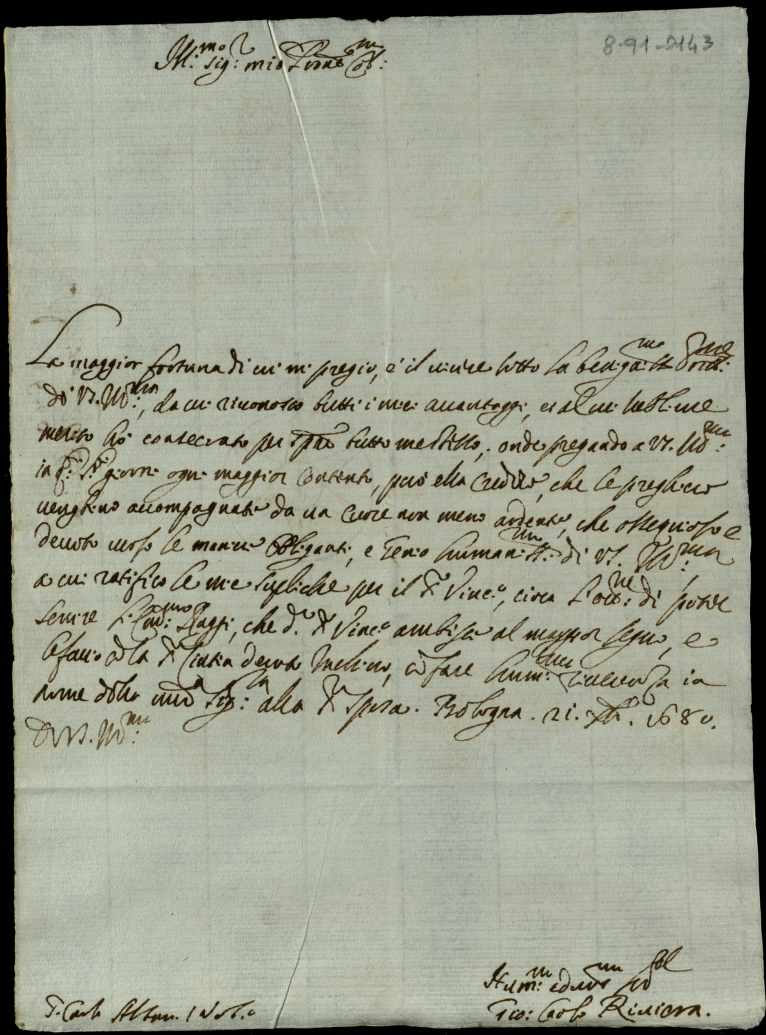 8-91-0143
Ill.mo Sig: mio Prone Col:
La maggior fortuna di cui mi pregio, è il vivere sotto la benig.ma
di VS. Ill:ma, da cui riconosco tutti i miei avantaggi, et al cui sublime
merito hò consecrato per tutto me stesso, onde pregando a VS. Ill:ma
in q.ti S.ti giorni ogni maggior contento, può ella credere, che le preghiere
venghino accompagnate da un cuore non meno ardente, che ossequioso e
devoto verso le maniere obliganti, e genio human.mo di VS. Ill:ma
a cui ratifico le mie supliche per il S.r Vinc.o, circa l'
di poter
servire che d.o S.r Vinc.o ambisce al maggior segno, e
la S.ra devoti inchini, fare hum:ma riverenza in
nome alla S.ra Sposa. Bologna. 21. Xbre. 1680.
Di VS. Ill:ma
Hum:mo
Gio: Carlo Riviera.
S. Carlo Alban.